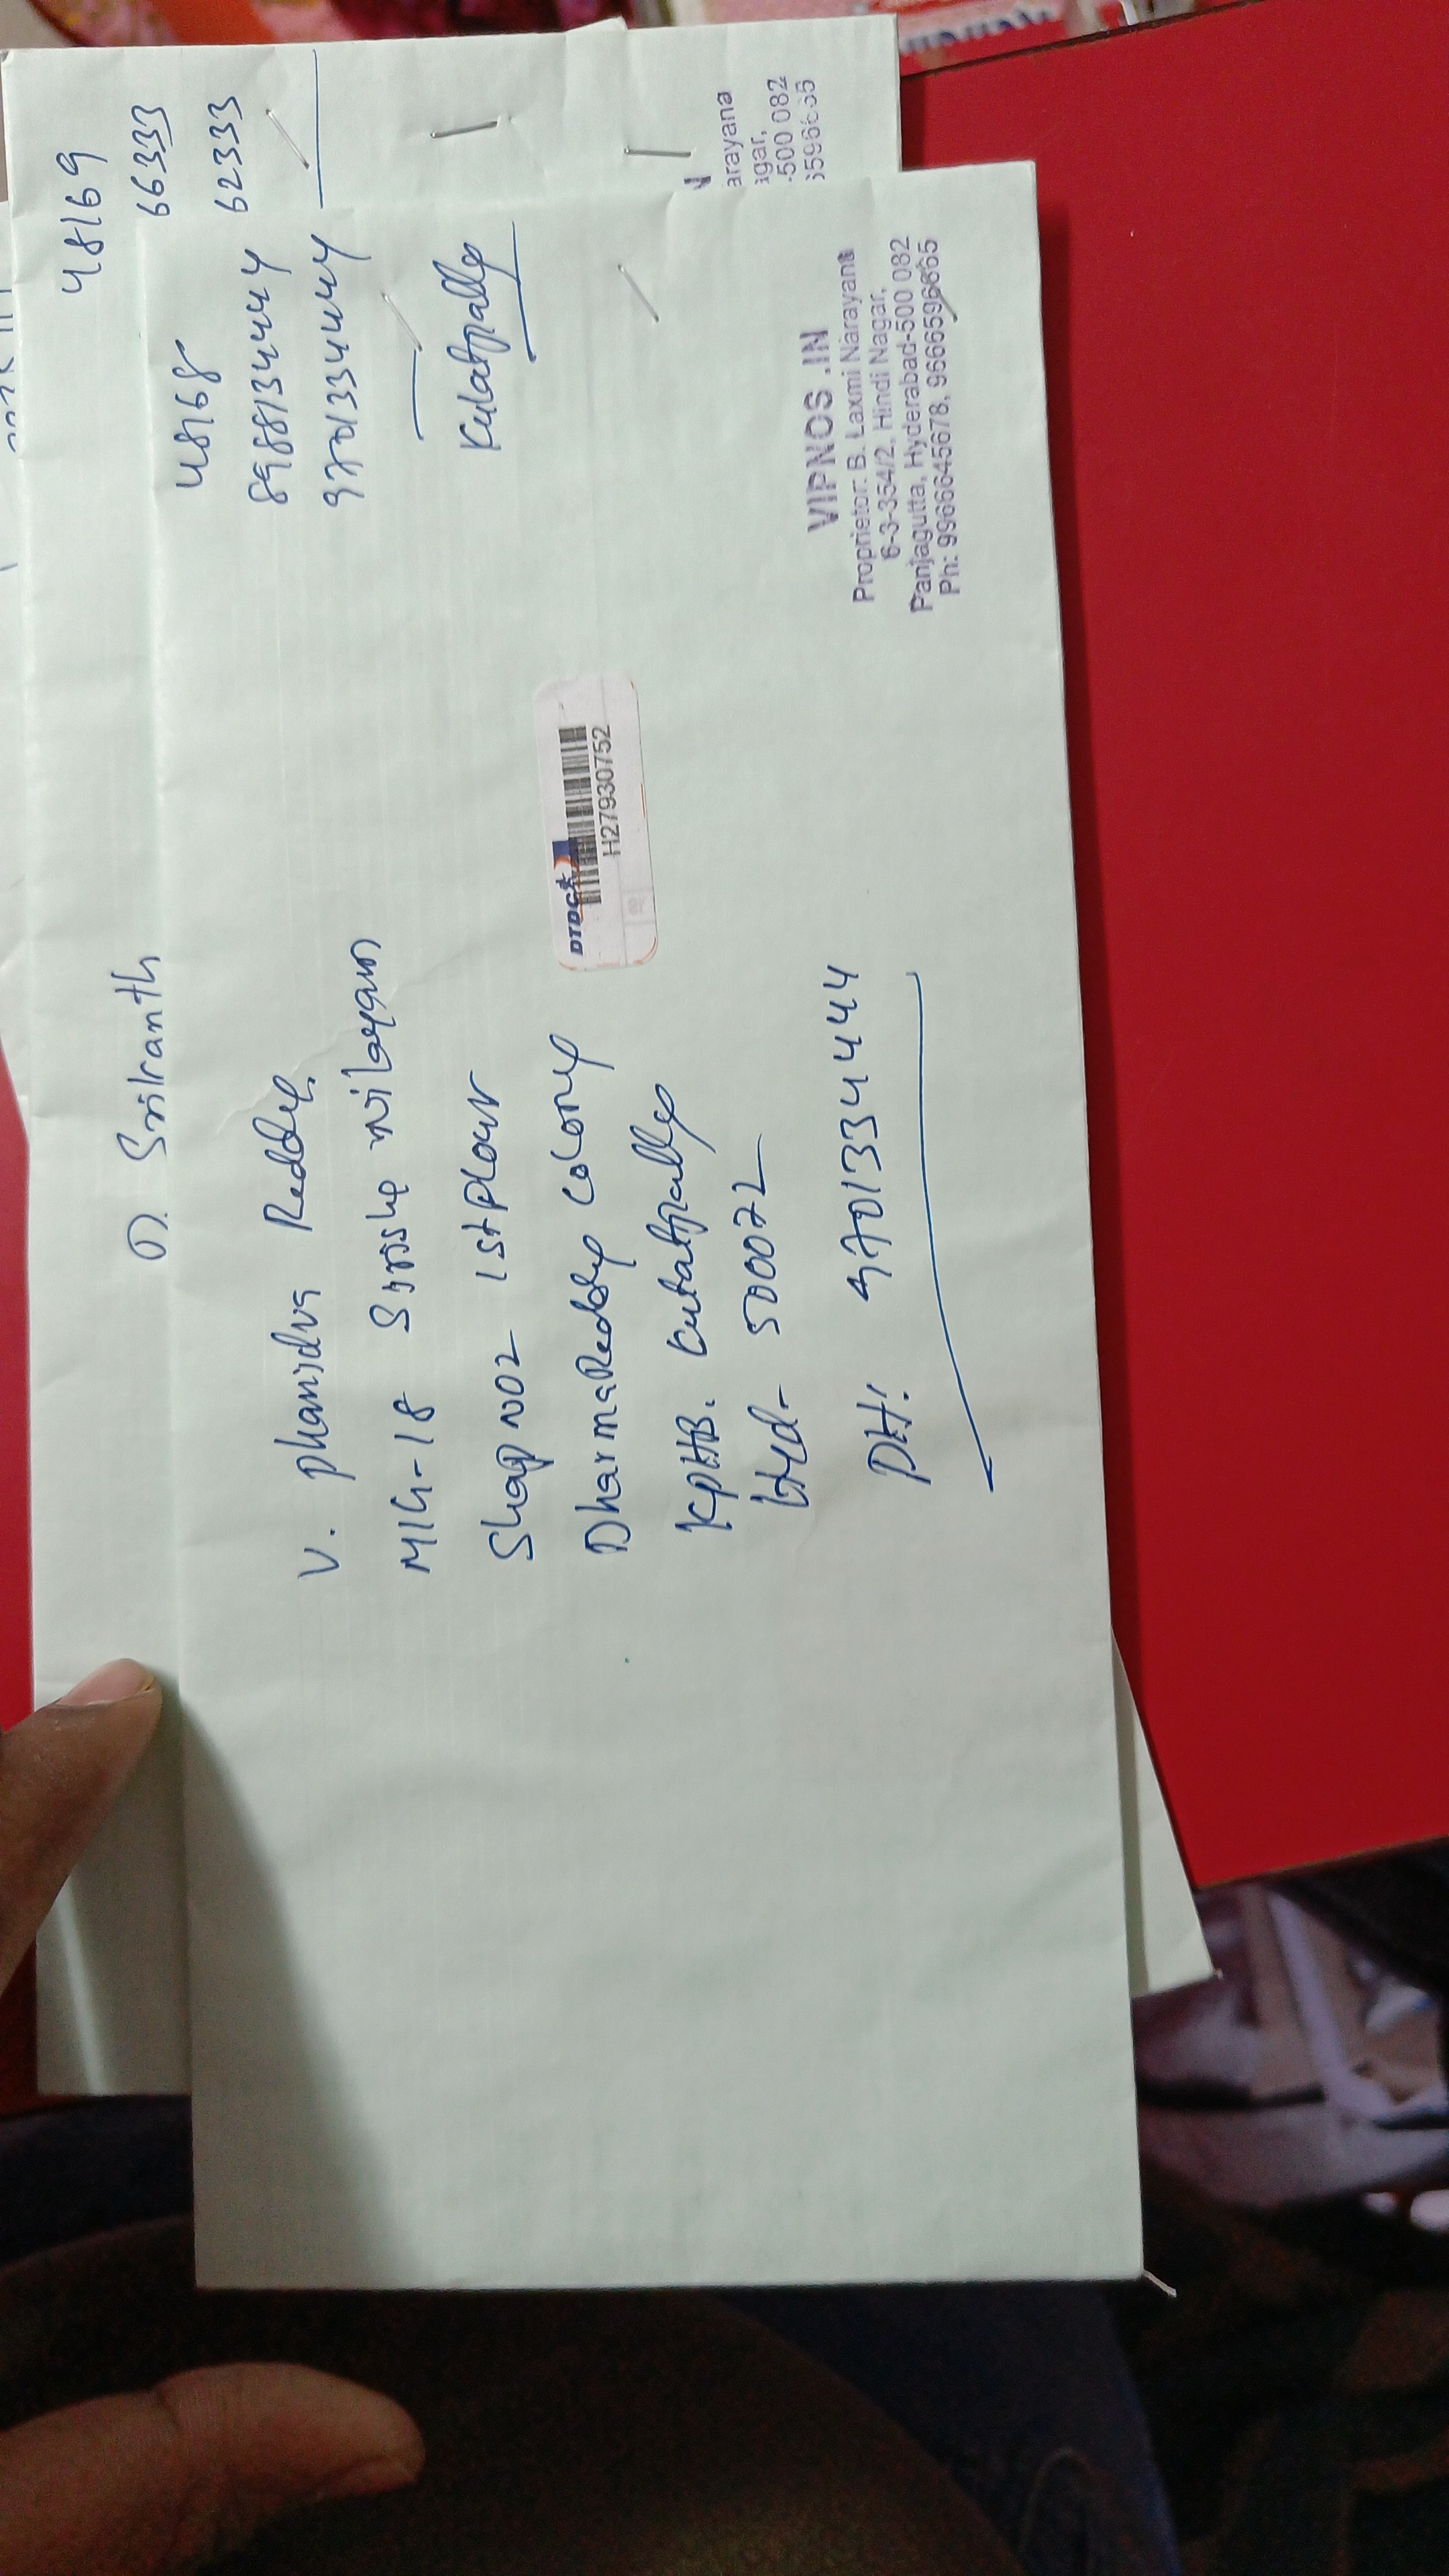 48169
66333
62333
D. Srikanth
48168
8988134444
9701334444
Kukatpally
V. phanidus Reddy.
MIG-18 nilayam
Shop no2 1st floor
DharmaReddy colony
KPHB. Kukatpally
Hyd- 500072
PH: 9701334444
DTDC
H27930752
VIPNOS.IN
Proprietor: B. Laxmi Narayana
6-3-354/2, Hindi Nagar,
Panjagutta, Hyderabad-500 082
Ph: 9966645678, 9666596665
N
arayana
agar,
-500 082